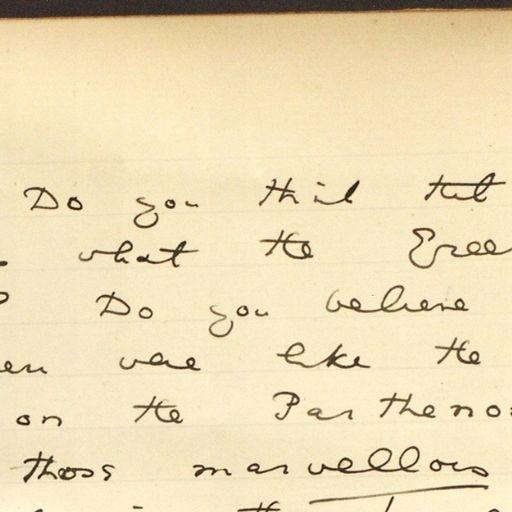 Do you think that
what the Gree
? Do you believe
en were like the
on the Parthenon
those marvellous